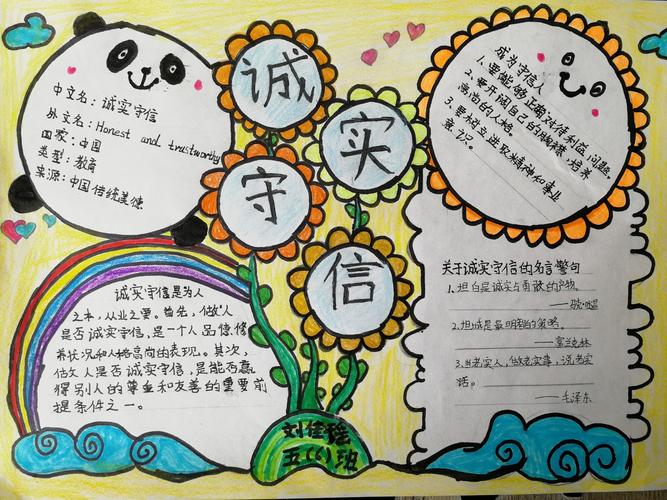 中文名：诚实守信
外文名：Honest and trustworthy
国家：中国
类型：教育
来源：中国传统美德
诚
实
守
信
成为守信人
1.要能够正确对待利益问题。
2.要开阔自己的胸襟，培养
高尚的人格。
3.要树立进取精神和事业
意识。
诚实守信是为人
之本，从业之要。首先，做人
是否诚实守信，是一个人品德修
养状况和人格高尚的表现。其次，
做人是否诚实守信，是能否赢
得别人的尊重和友善的重要前
提条件之一。
关于诚实守信的名言警句
1.坦白是诚实与勇敢的产物。
2.坦诚是最明智的策略。
——富兰克林
3.当老实人，做老实事，说老实
话。
——毛泽东
刘佳瑶
五(1)班